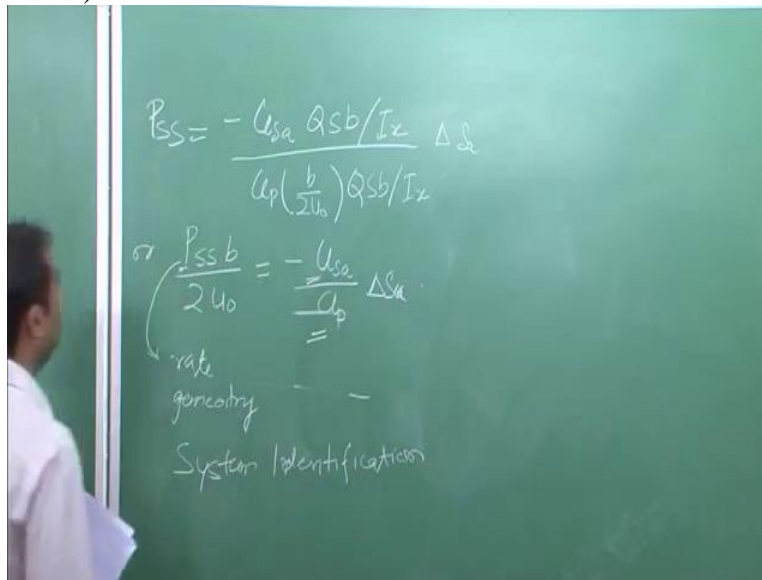 Pss = - Clδa QSb/Ix / Clp (b/2u0) QSb/Ix Δδa
or Pss b / 2u0 = - Clδa / Clp Δδa
rate
geometry —
System Identification